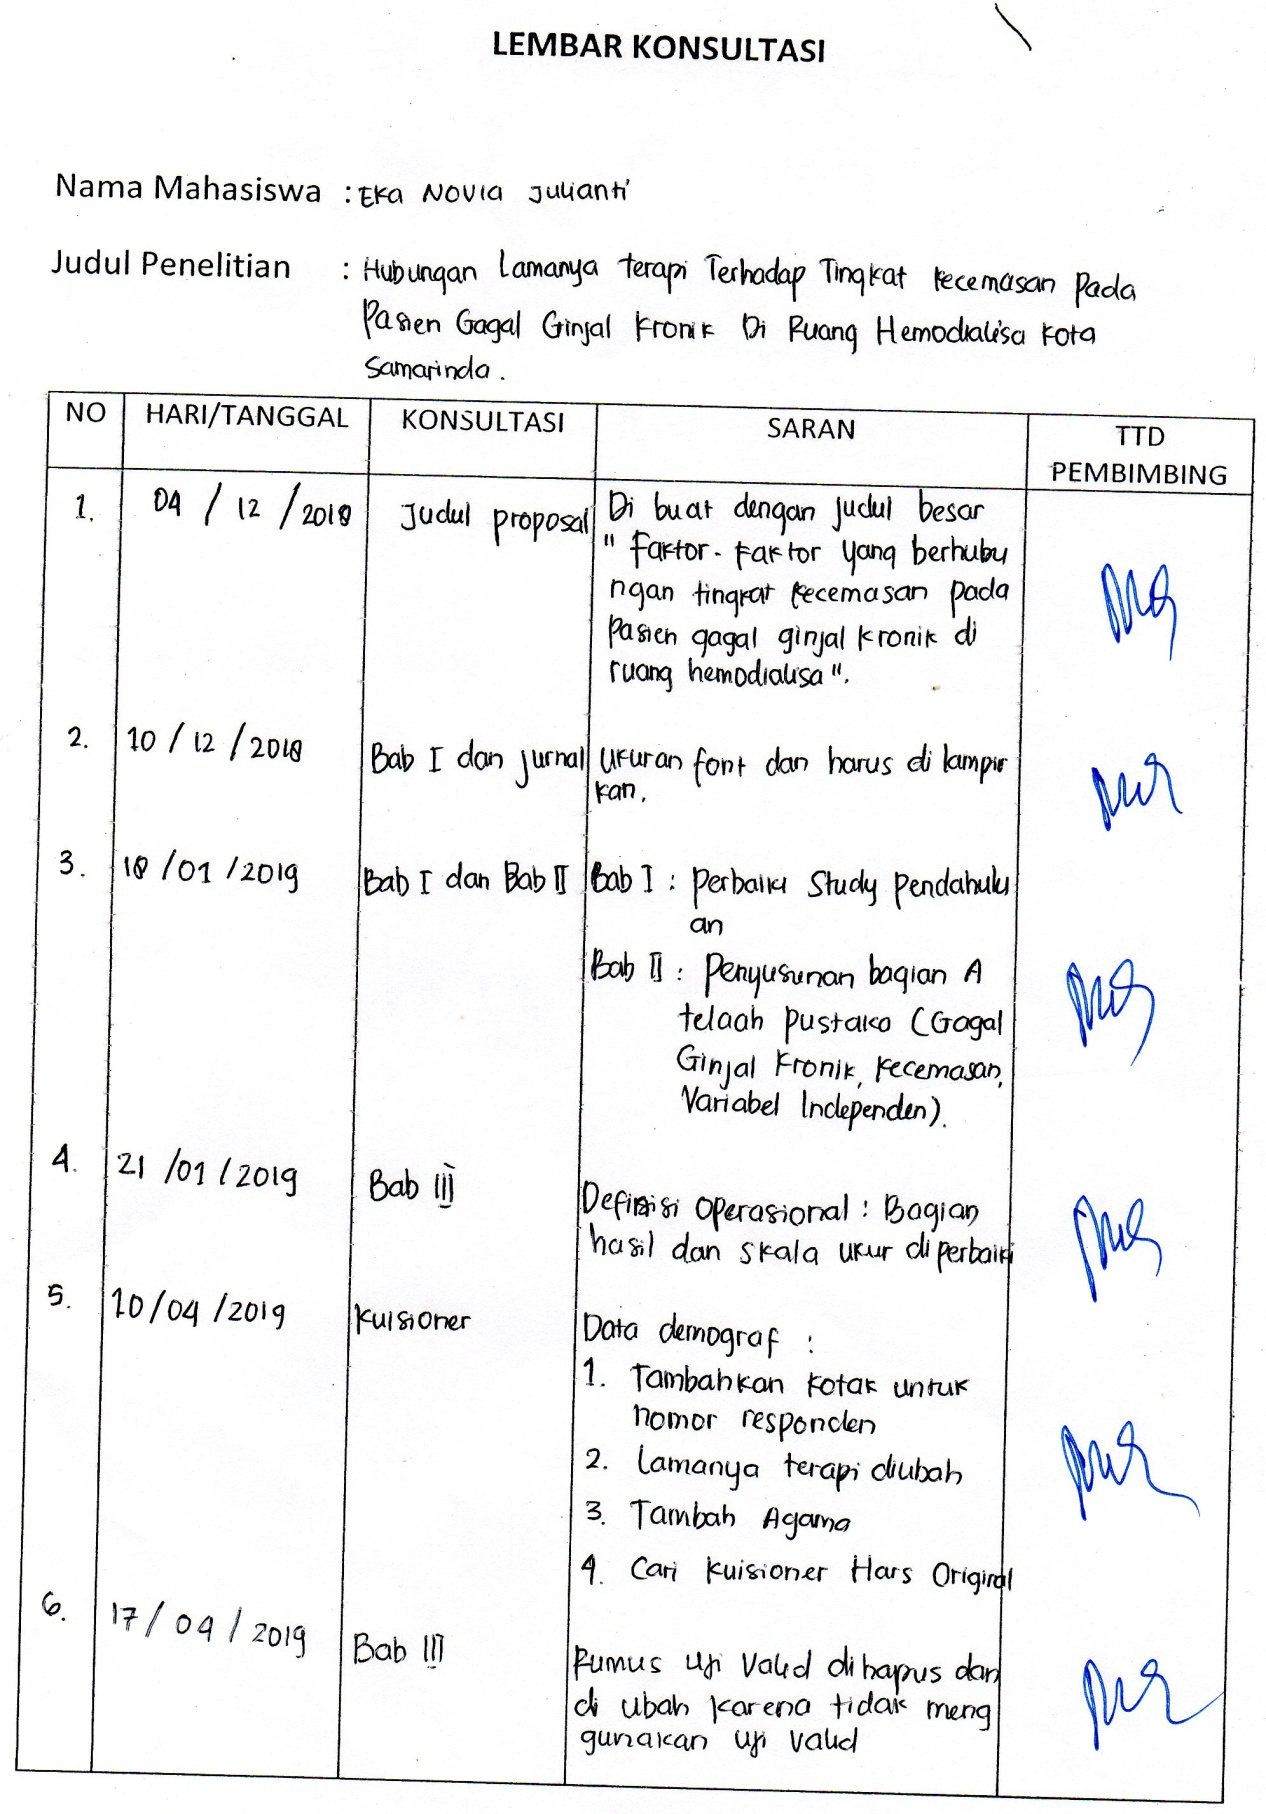 LEMBAR KONSULTASI
Nama Mahasiswa : Eka Novia Julianti
Judul Penelitian : Hubungan Lamanya terapi Terhadap Tingkat Kecemasan Pada
Pasien Gagal Ginjal Kronik Di Ruang Hemodialisa Kota
Samarinda.
NO HARI/TANGGAL KONSULTASI SARAN TTD
PEMBIMBING
1. 04 / 12 / 2018 Judul proposal Di buat dengan judul besar
" Faktor - Faktor yang berhubu
ngan tingkat kecemasan pada
pasien gagal ginjal kronik di
ruang hemodialisa ".
2. 10 / 12 / 2018 Bab I dan jurnal Ukuran font dan harus di lampir
kan.
3. 18 /01 /2019 Bab I dan Bab II Bab I : Perbaiki Study Pendahulu
an
Bab II : Penyusunan bagian A
telaah pustaka (Gagal
Ginjal Kronik, Kecemasan,
Variabel Independen).
4. 21 /01 /2019 Bab III Definisi Operasional : Bagian
hasil dan skala ukur diperbaiki
5. 10/04 /2019 Kuisioner Data demograf :
1. Tambahkan kotak untuk
nomor responden
2. Lamanya terapi diubah
3. Tambah Agama
4. Cari Kuisioner Hars Original
6. 17/ 04 / 2019 Bab III Rumus Uji Valid dihapus dan
di ubah karena tidak meng
gunakan uji valid